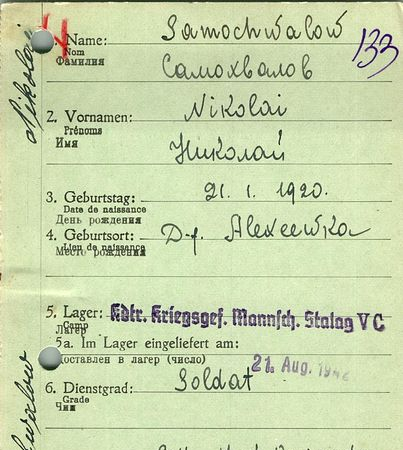 4
133
1. Name: Samochwalow
Nom
Фамилия Самохвалов
Nikolai
2. Vornamen: Nikolai
Prénoms
Имя Николай
3. Geburtstag: 21. 1. 1920.
Date de naissance
День рождения
4. Geburtsort: D-f. Alexeewka
Lieu de naissance
Место рождения
5. Lager: Kdtr. Kriegsgef. Mannsch. Stalag V C
Camp
Лагерь
5a. Im Lager eingeliefert am:
Доставлен в лагерь (число) 21. Aug. 1942
6. Dienstgrad: Soldat
Grade
Чин